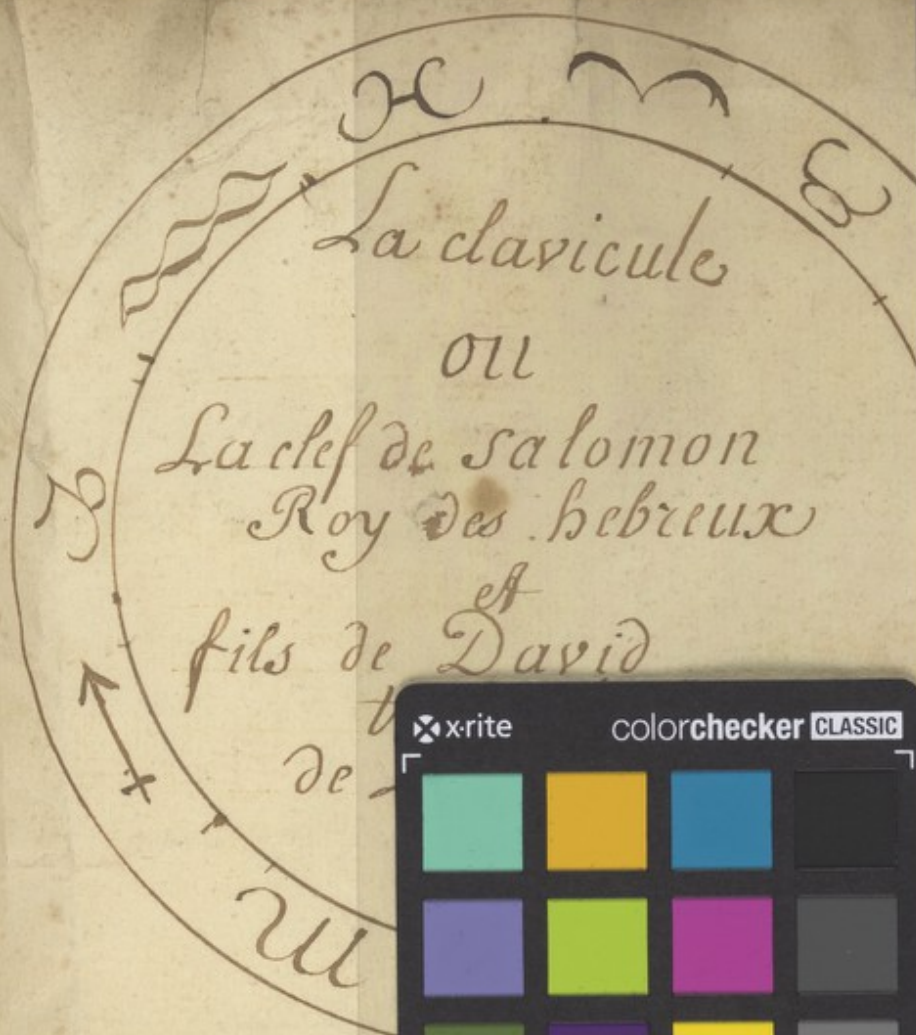 La clavicule
ou
La clef de salomon
Roy des hebreux
et
fils de David
de
x·rite colorchecker CLASSIC